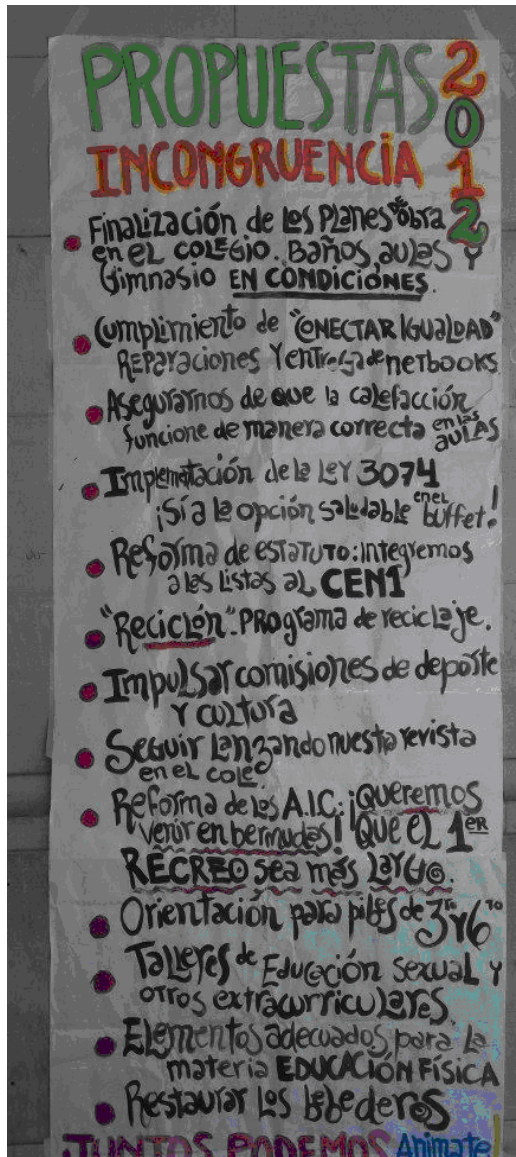 PROPUESTAS 2012
INCONGRUENCIA
Finalización de los planes de obra
en el colegio. Baños, aulas y
Gimnasio EN CONDICIONES.
Cumplimiento de "CONECTAR IGUALDAD"
REPARACIONES Y entrega de netbooks
Asegurarnos de que la calefacción
funcione de manera correcta en las
aulas
Implementación de la LEY 3074
¡Sí a la opción saludable en el buffet!
Reforma de ESTATUTO: integremos
a las listas al CEN1
"Reciclón". PROgrama de reciclaje.
Impulsar comisiones de deporte
Y cultura
Seguir lanzando nuestra revista
en el cole
Reforma de los A.I.C: ¡Queremos
venir en bermudas! Que el 1ER
RECREO sea más largo.
Orientación para pibes de 3ro y 6to
Talleres de Educación sexual y
otros extracurriculares.
Elementos adecuados para la
materia EDUCACIÓN FÍSICA
Restaurar los bebederos
JUNTOS PODEMOS Animate